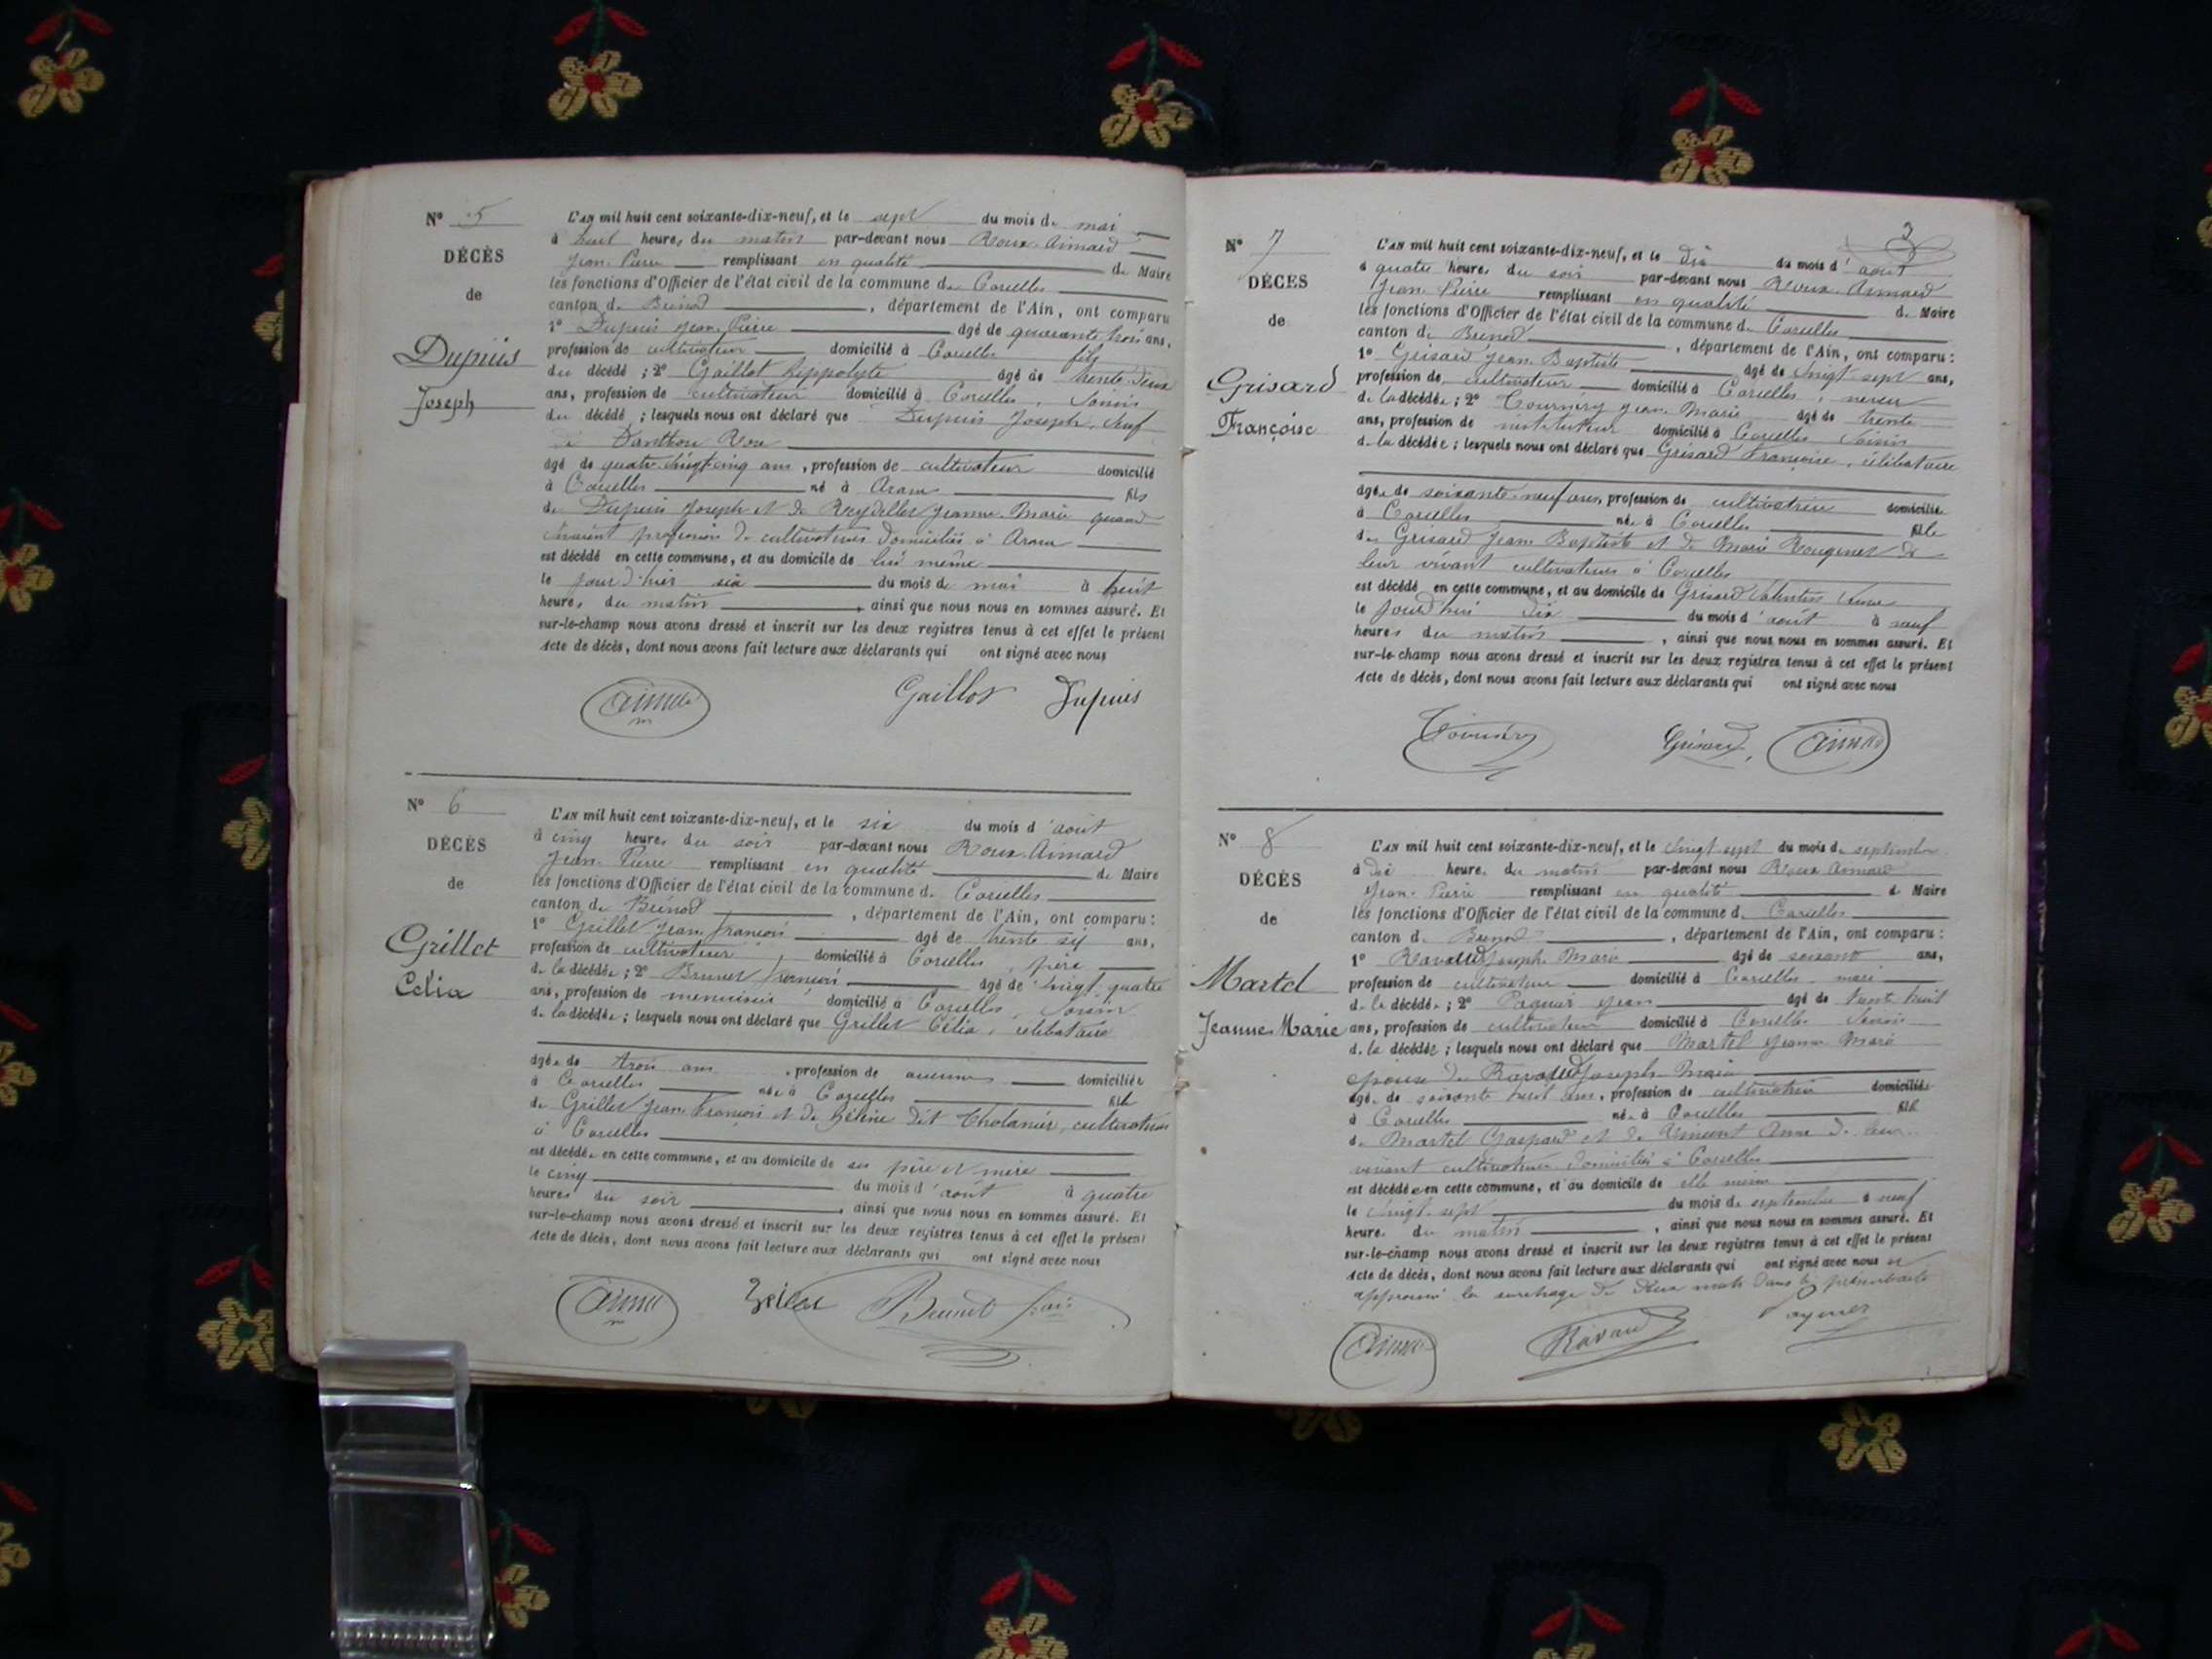 N° 5
DÉCÈS
de
Dupuis
Joseph
L'AN mil huit cent soixante-dix-neuf, et le sept du mois de mai
à huit heures du matin par-devant nous Roux-Aimard
Jean-Pierre remplissant en qualité de Maire
les fonctions d'Officier de l'état civil de la commune de Corcelles
canton de Brénod, département de l'Ain, ont comparu
1° Dupuis Jean-Pierre âgé de quarante trois ans,
profession de cultivateur domicilié à Corcelles fils
du décédé ; 2° Gaillot hippolyte âgé de trente deux
ans, profession de cultivateur domicilié à Corcelles, voisin
du décédé ; lesquels nous ont déclaré que Dupuis Joseph, veuf
de Danthon Rose
âgé de quatre-vingt-cinq ans, profession de cultivateur domicilié
à Corcelles né à Aranc fils
de Dupuis Joseph et de Reydellet Jeanne-Marie quand
vivaient profession de cultivateurs domiciliés à Aranc
est décédé en cette commune, et au domicile de lui même
le jour d'hier six du mois de mai à huit
heures du matin, ainsi que nous nous en sommes assuré. Et
sur-le-champ nous avons dressé et inscrit sur les deux registres tenus à cet effet le présent
Acte de décès, dont nous avons fait lecture aux déclarants qui ont signé avec nous
Gaillot Dupuis
N° 6
DÉCÈS
de
Grillet
Celia
L'AN mil huit cent soixante-dix-neuf, et le six du mois d'août
à cinq heures du soir par-devant nous Roux-Aimard
Jean-Pierre remplissant en qualité de Maire
les fonctions d'Officier de l'état civil de la commune de Corcelles
canton de Brénod, département de l'Ain, ont comparu :
1° Grillet Jean-françois âgé de trente six ans,
profession de cultivateur domicilié à Corcelles, père
de la décédée ; 2° Brunet françois âgé de vingt quatre
ans, profession de menuisier domicilié à Corcelles, voisin
de la décédée ; lesquels nous ont déclaré que Grillet Célia, célibataire
âgée de trois ans, profession de aucune domiciliée
à Corcelles née à Corcelles fille
de Grillet Jean-François et de dit Tholanier, cultivateurs
à Corcelles
est décédée en cette commune, et au domicile de ses père et mère
le cinq du mois d'août à quatre
heures du soir, ainsi que nous nous en sommes assuré. Et
sur-le-champ nous avons dressé et inscrit sur les deux registres tenus à cet effet le présent
Acte de décès, dont nous avons fait lecture aux déclarants qui ont signé avec nous
Brunet
3
N° 7
DÉCÈS
de
Grisard
Françoise
L'AN mil huit cent soixante-dix-neuf, et le dix du mois d'août
à quatre heures du soir par-devant nous Roux-Aimard
Jean-Pierre remplissant en qualité de Maire
les fonctions d'Officier de l'état civil de la commune de Corcelles
canton de Brénod, département de l'Ain, ont comparu :
1° Grisard Jean-Baptiste âgé de vingt-sept ans,
profession de cultivateur domicilié à Corcelles, neveu
de la décédée ; 2° Tournéry Jean-Marie âgé de trente
ans, profession de instituteur domicilié à Corcelles voisin
de la décédée ; lesquels nous ont déclaré que Grisard Françoise, célibataire
âgée de soixante-neuf ans, profession de cultivatrice domiciliée
à Corcelles née à Corcelles fille
de Grisard Jean-Baptiste et de Marie Rougemet de
leur vivant cultivateurs à Corcelles
est décédé en cette commune, et au domicile de Grisard Valentin
le jourd'hui dix du mois d'août à neuf
heures du matin, ainsi que nous nous en sommes assuré. Et
sur-le-champ nous avons dressé et inscrit sur les deux registres tenus à cet effet le présent
Acte de décès, dont nous avons fait lecture aux déclarants qui ont signé avec nous
Tournéry Grisard
N° 8
DÉCÈS
de
Martel
Jeanne Marie
L'AN mil huit cent soixante-dix-neuf, et le vingt sept du mois de septembre
à dix heures du matin par-devant nous Roux Aimard
Jean-Pierre remplissant en qualité de Maire
les fonctions d'Officier de l'état civil de la commune de Corcelles
canton de Brénod, département de l'Ain, ont comparu :
1° Joseph Marie âgé de soixante ans,
profession de cultivateur domicilié à Corcelles mari
de la décédée ; 2° Jean âgé de trente huit
ans, profession de cultivateur domicilié à Corcelles voisin
de la décédée ; lesquels nous ont déclaré que Martel Jeanne Marie
épouse de Joseph-Marie
âgée de soixante huit ans, profession de cultivatrice domiciliée
à Corcelles née à Corcelles fille
de Martel Gaspard et de Vincent Anne de leur
vivant cultivateurs domiciliés à Corcelles
est décédée en cette commune, et au domicile de elle même
le vingt-sept du mois de septembre à neuf
heures du matin, ainsi que nous nous en sommes assuré. Et
sur-le-champ nous avons dressé et inscrit sur les deux registres tenus à cet effet le présent
Acte de décès, dont nous avons fait lecture aux déclarants qui ont signé avec nous et
approuvé la surcharge de deux mots dans le présent acte